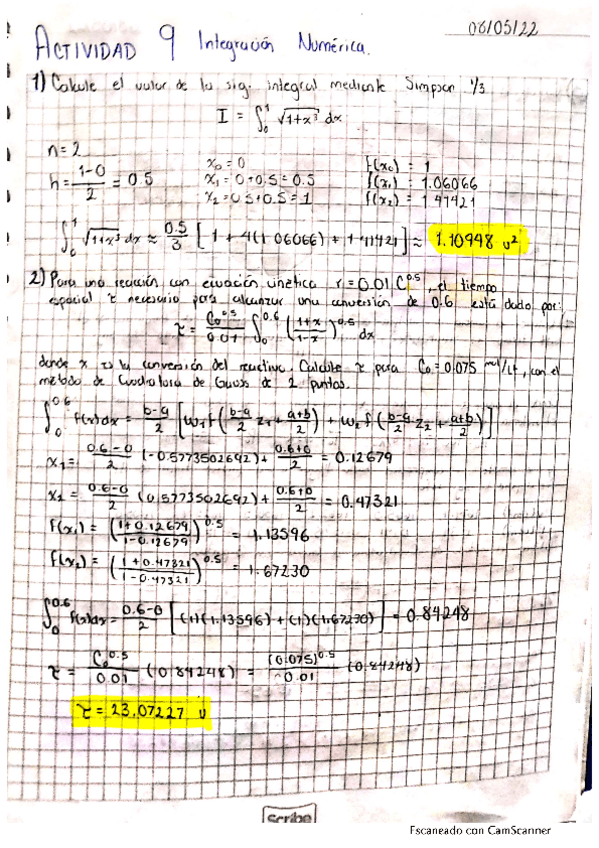 08/05/22
ACTIVIDAD 9 Integración Numérica.
1) Calcule el valor de la sig. integral mediante Simpson 1/3
I = ∫₀¹ √(1+x³) dx
n = 2
h = (1-0)/2 = 0.5
x₀ = 0
x₁ = 0+0.5 = 0.5
x₂ = 0.5+0.5 = 1
f(x₀) = 1
f(x₁) = 1.06066
f(x₂) = 1.41421
∫₀¹ √(1+x³) dx ≈ 0.5/3 [1 + 4(1.06066) + 1.41421] ≈ 1.10998 u²
2) Para una reacción con ecuación cinética r = 0.01 C^0.5, el tiempo
espacial τ necesario para alcanzar una conversión de 0.6 está dado por:
τ = C₀^0.5/0.01 ∫₀^0.6 ((1+x)/(1-x))^0.5 dx
donde x es la conversión del reactivo. Calcule τ para C₀ = 0.075 mol/Lt, con el
método de Cuadratura de Gauss de 2 puntos.
∫₀^0.6 f(x)dx = (b-a)/2 [w₁f((b-a)/2 z₁ + (a+b)/2) + w₂f((b-a)/2 z₂ + (a+b)/2)]
x₁ = (0.6-0)/2 (-0.5773502692) + (0.6+0)/2 = 0.12679
x₂ = (0.6-0)/2 (0.5773502692) + (0.6+0)/2 = 0.47321
f(x₁) = ((1+0.12679)/(1-0.12679))^0.5 = 1.13596
f(x₂) = ((1+0.47321)/(1-0.47321))^0.5 = 1.67230
∫₀^0.6 f(x)dx = (0.6-0)/2 [(1)(1.13596) + (1)(1.67230)] = 0.84248
τ = C₀^0.5/0.01 (0.84248) = (0.075)^0.5/0.01 (0.84248)
τ = 23.07227 u
Scribe
Escaneado con CamScanner